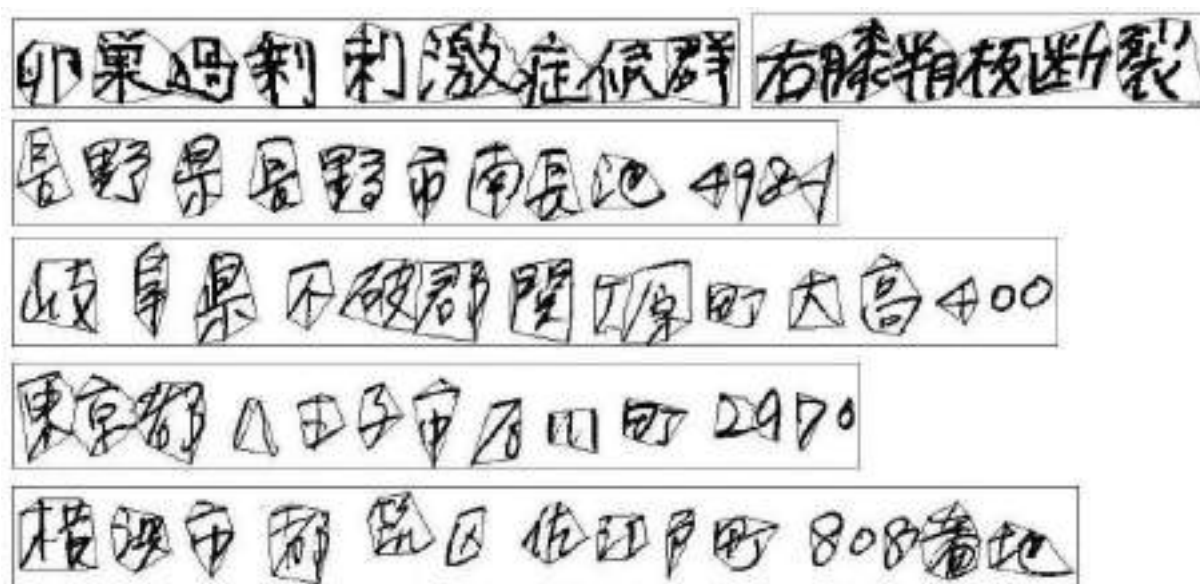 卵巣過剰刺激症候群 右膝半月板断裂
長野県長野市南長池 498-1
岐阜県不破郡関ケ原町大高400
東京都八王子市石川町 2970
横浜市都筑区佐江戸町 808番地